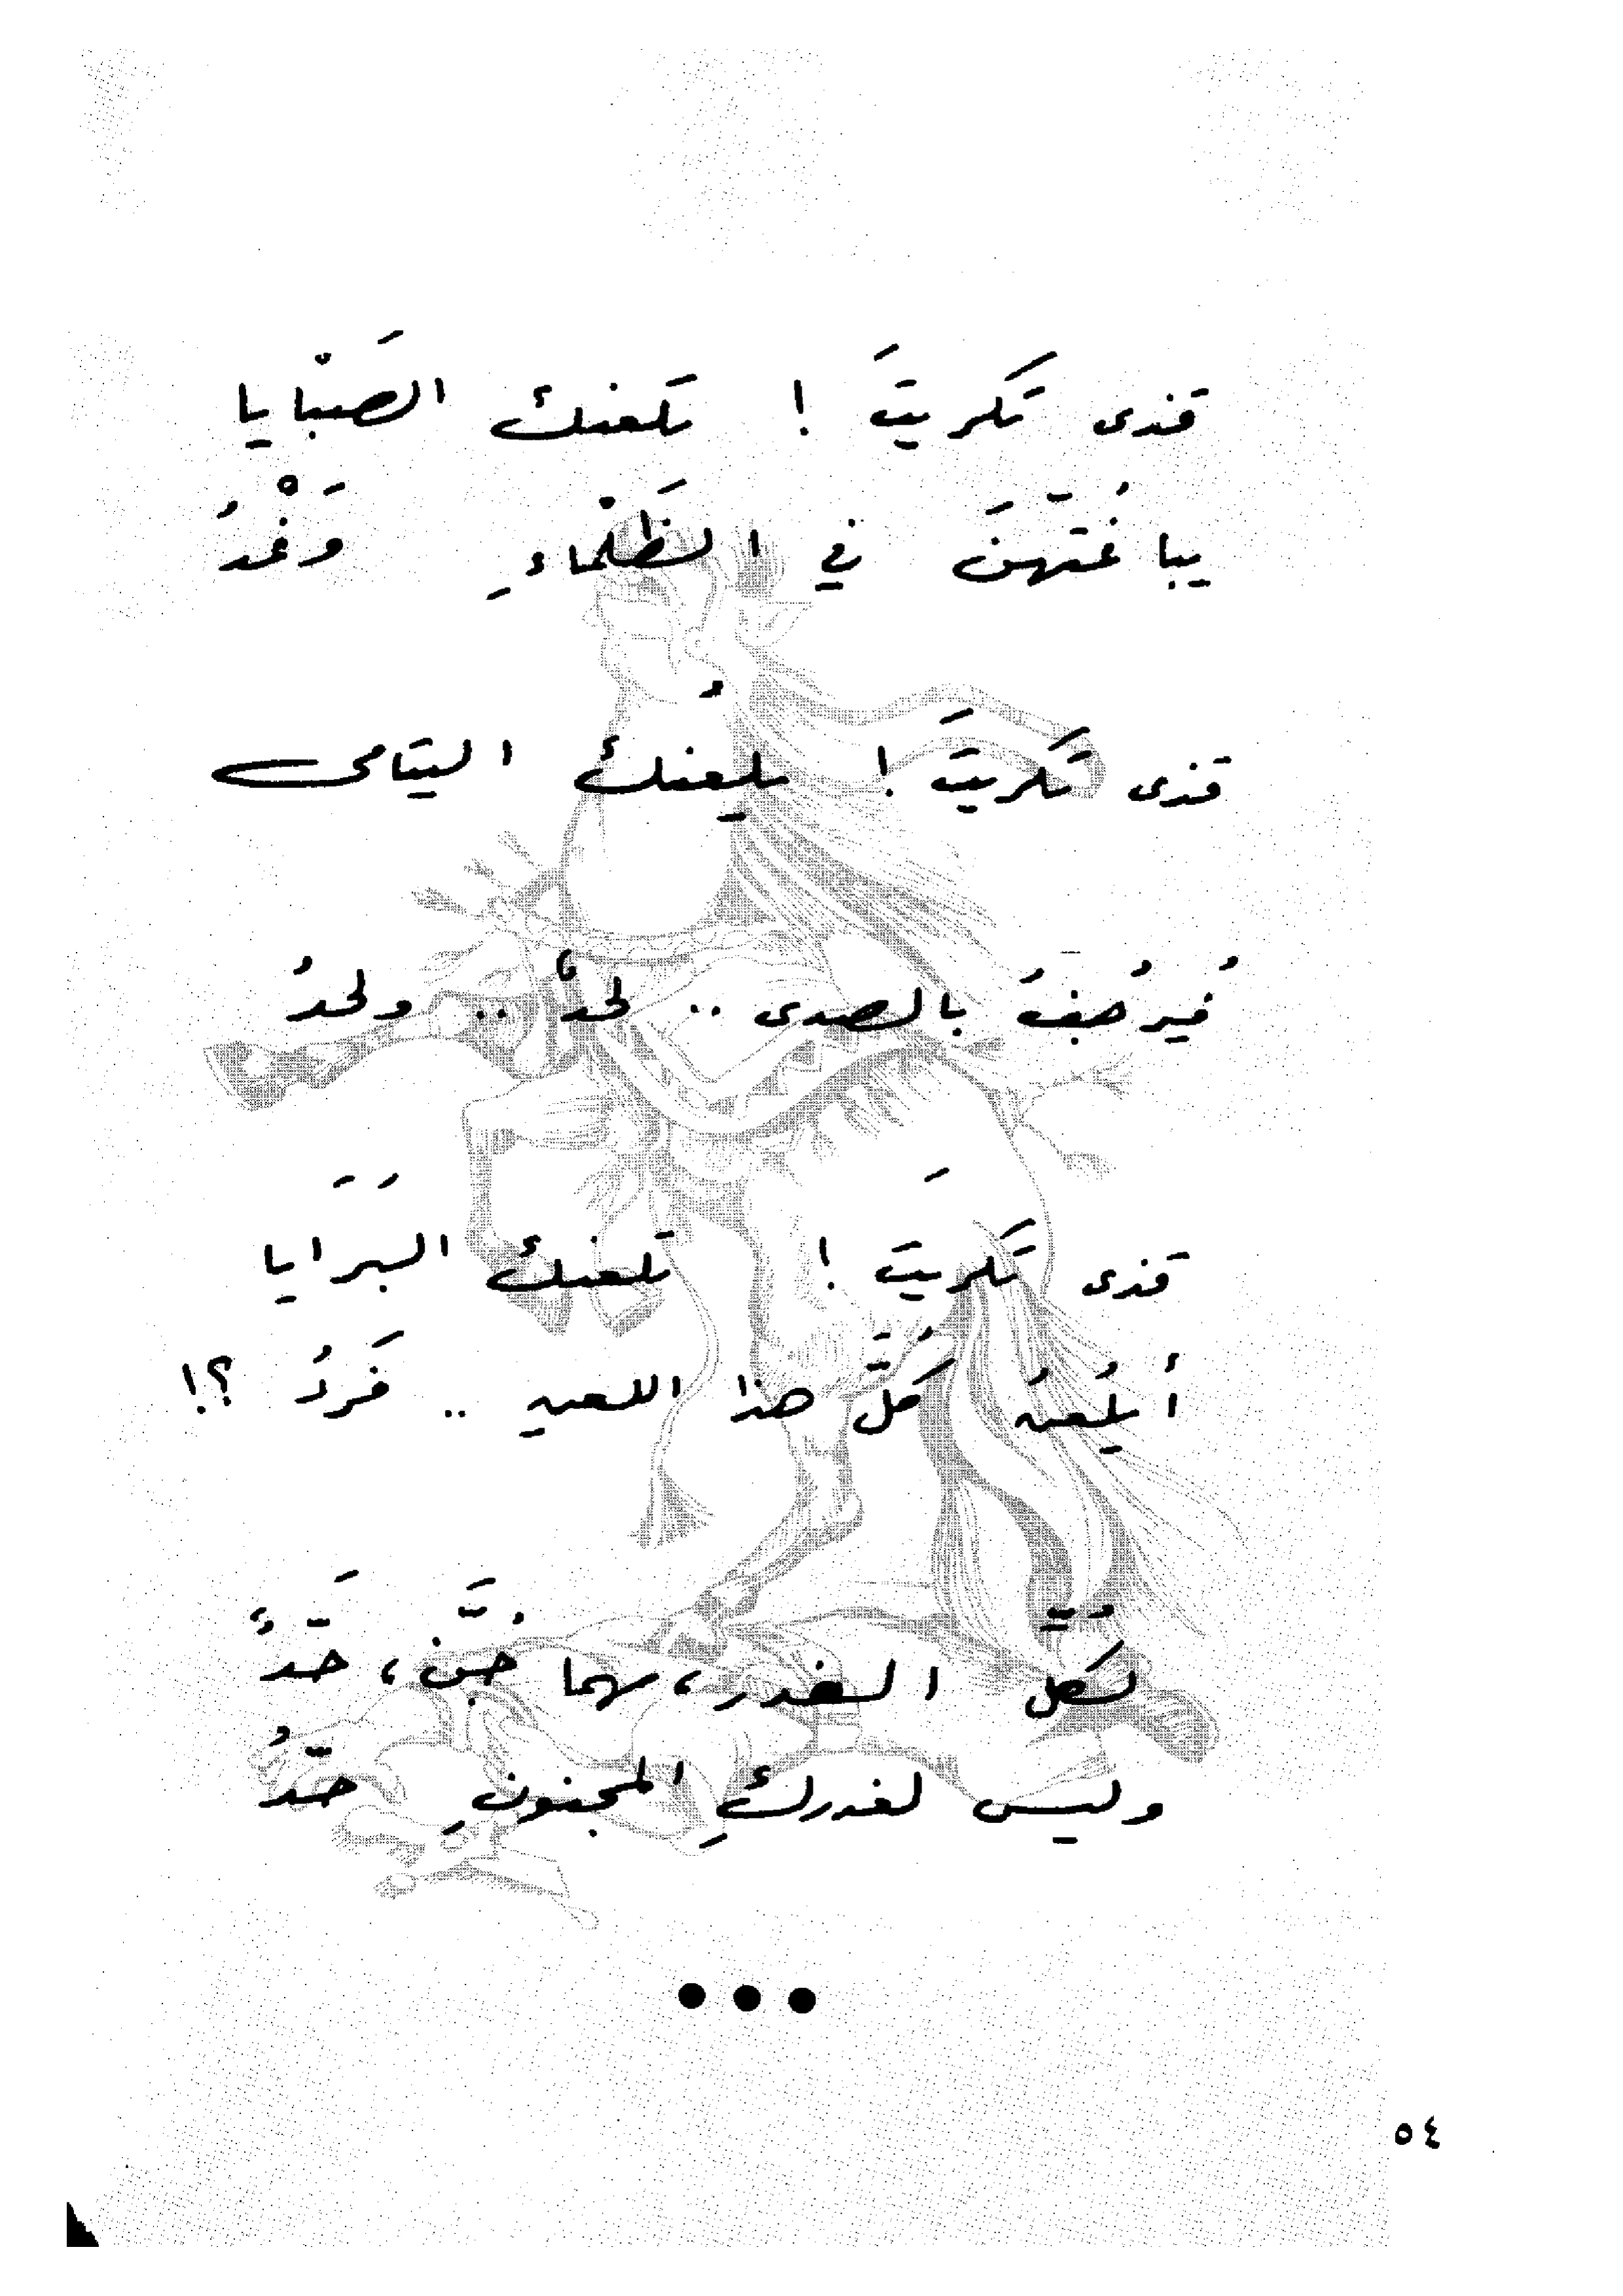 قذى تكريتَ ! تلعنك الصَبْايا
يباغُتهّنَ في الظَلْماءِ وَغْدُ
قذى تكريتَ ! يلعنُك اليتامى
فيُرصُفُ بالصدى .. لحدٌ .. ولحدُ
قذى تكريتَ ! تلعنك البَرَايا
أيلُعنُ كُلَّ هذا اللعنِ .. فَردُ ؟!
لكلّ الغدرِ، مهما جُنَّ، حَدّ
وليس لغدركِ المجنونِ حدّ
٥٤